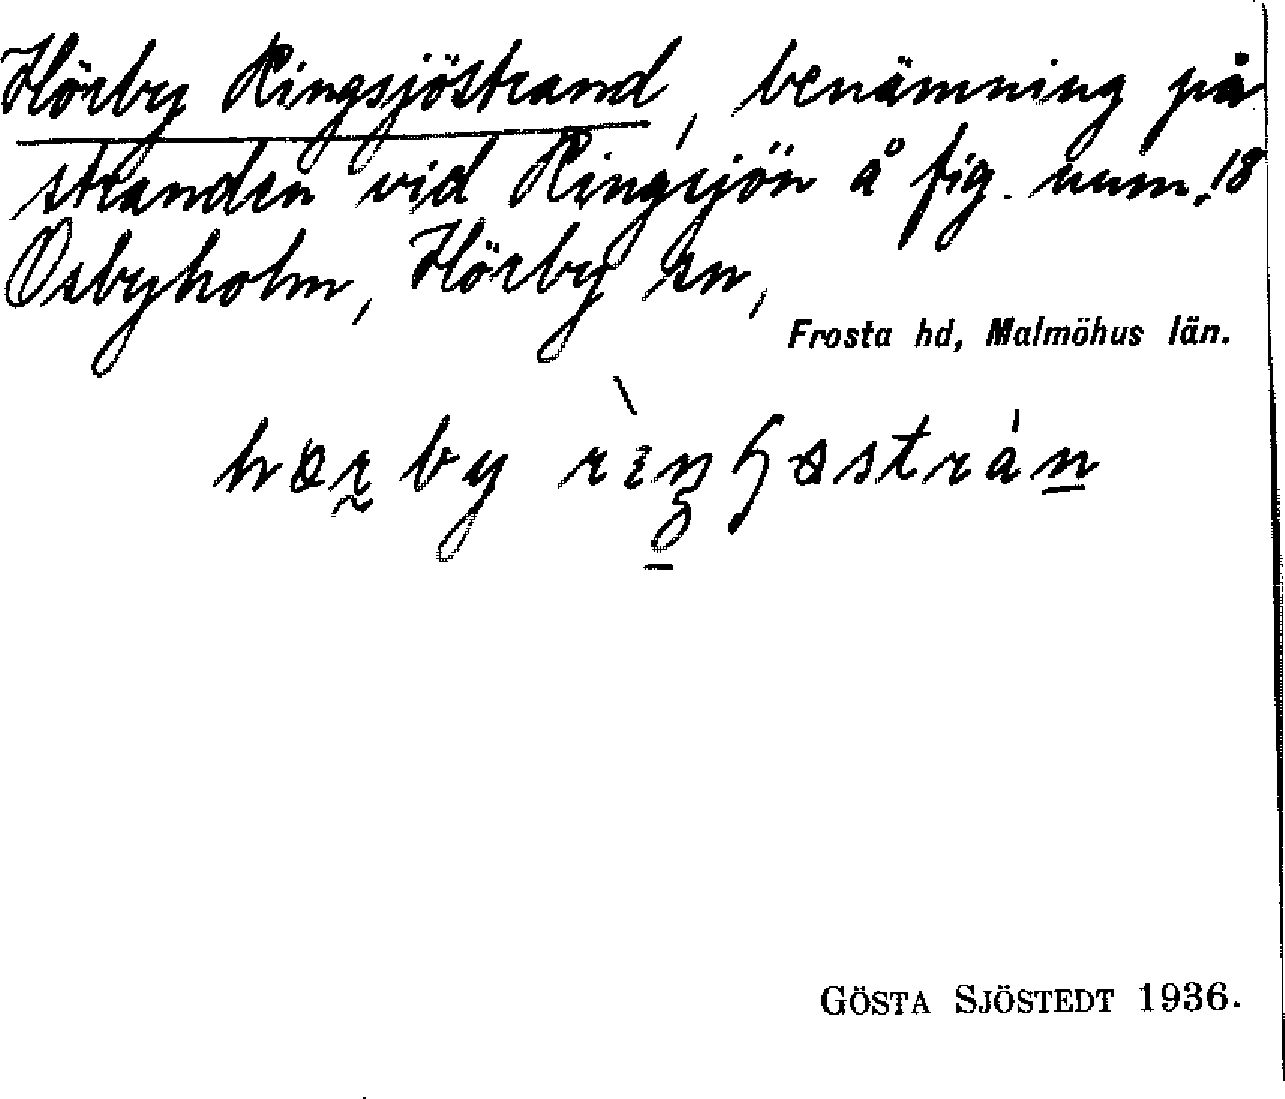 Hörby Ringsjöstrand, benämning på
stranden vid Ringsjön å fig. num. 18
Osbyholm, Hörby sn,
Frosta hd, Malmöhus län.
GÖSTA SJÖSTEDT 1936.